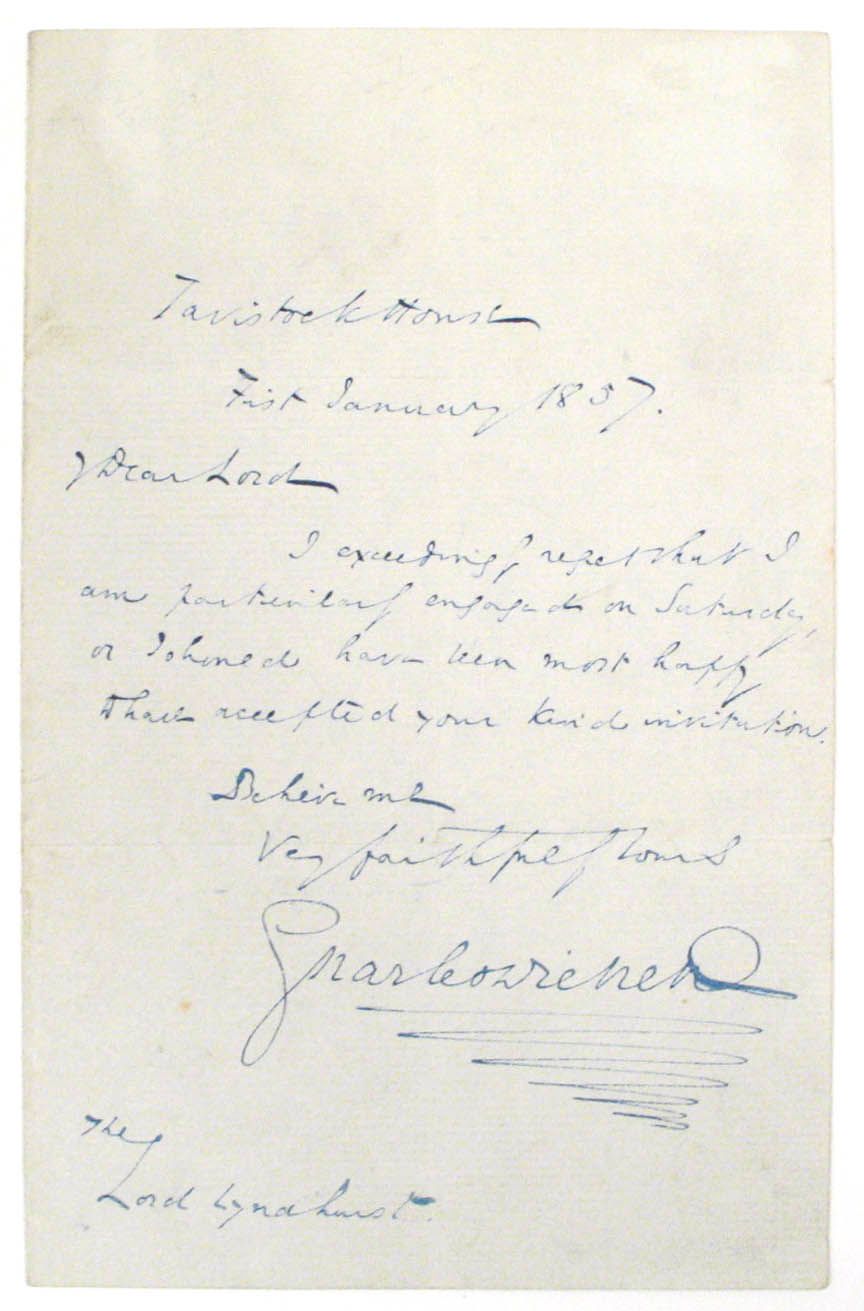 Tavistock House
First January 1857.
My Dear Lord
I exceedingly regret that I
am particularly engaged on Saturday,
or I should have been most happy
to have accepted your kind invitation.
Believe me
Very faithfully Yours
Charles Dickens
The
Lord Lyndhurst.